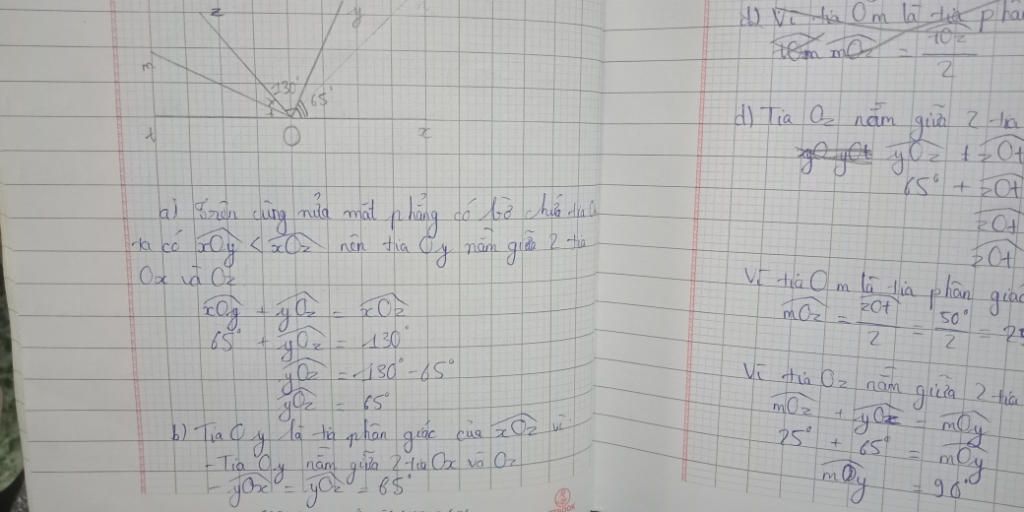 z
y
m
130°
65°
t
O
x
a) Trên cùng nửa mặt phẳng có bờ chứa tia
ta có xOy < xOz nên tia Oy nằm giữa 2 tia
Ox và Oz
xOy + yOz = xOz
65° + yOz = 130°
yOz = 130° - 65°
yOz = 65°
b) Tia Oy là tia phân giác của xOz vì
- Tia Oy nằm giữa 2 tia Ox và Oz
- yOx = yOz = 65°
d) Vì tia Om là tia phân
mOz = tOz
2
d) Tia Oz nằm giữa 2 tia
yOz + zOt
65° + zOt
zOt
zOt
Vì tia Om là tia phân giác
mOz = zOt/2 = 50°/2 = 25
Vì tia Oz nằm giữa 2 tia
mOz + yOz = mOy
25° + 65° = mOy
mOy = 90°